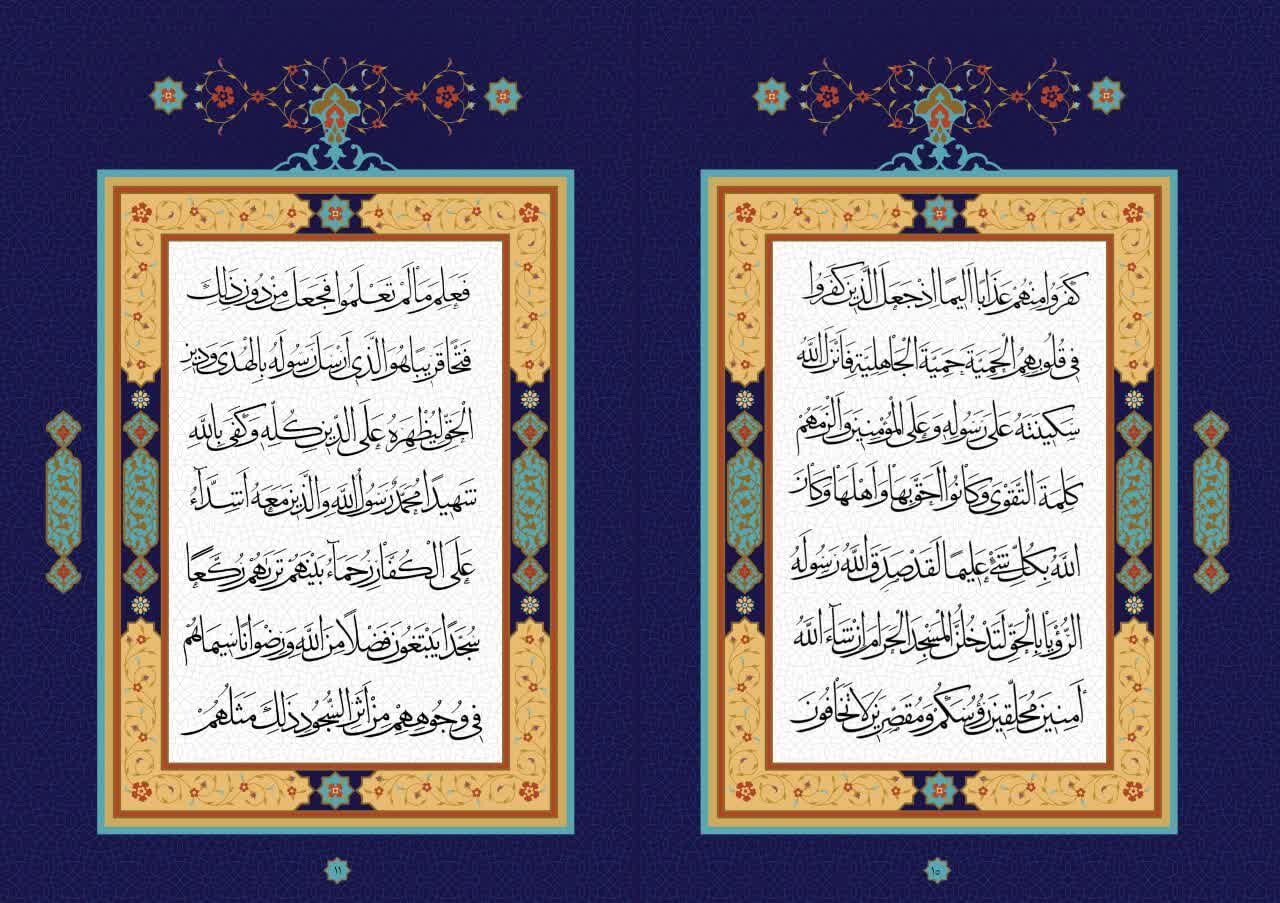 كَفَرُوا مِنْهُمْ عَذَابًا أَلِيمًا إِذْ جَعَلَ الَّذِينَ كَفَرُوا
فِي قُلُوبِهِمُ الْحَمِيَّةَ حَمِيَّةَ الْجَاهِلِيَّةِ فَأَنْزَلَ اللَّهُ
سَكِينَتَهُ عَلَى رَسُولِهِ وَعَلَى الْمُؤْمِنِينَ وَأَلْزَمَهُمْ
كَلِمَةَ التَّقْوَى وَكَانُوا أَحَقَّ بِهَا وَأَهْلَهَا وَكَانَ
اللَّهُ بِكُلِّ شَيْءٍ عَلِيمًا لَقَدْ صَدَقَ اللَّهُ رَسُولَهُ
الرُّؤْيَا بِالْحَقِّ لَتَدْخُلُنَّ الْمَسْجِدَ الْحَرَامَ إِنْ شَاءَ اللَّهُ
آمِنِينَ مُحَلِّقِينَ رُؤُسَكُمْ وَمُقَصِّرِينَ لَا تَخَافُونَ
١٠
فَعَلِمَ مَا لَمْ تَعْلَمُوا فَجَعَلَ مِنْ دُونِ ذَلِكَ
فَتْحًا قَرِيبًا هُوَ الَّذِي أَرْسَلَ رَسُولَهُ بِالْهُدَى وَدِينِ
الْحَقِّ لِيُظْهِرَهُ عَلَى الدِّينِ كُلِّهِ وَكَفَى بِاللَّهِ
شَهِيدًا مُحَمَّدٌ رَسُولُ اللَّهِ وَالَّذِينَ مَعَهُ أَشِدَّاءُ
عَلَى الْكُفَّارِ رُحَمَاءُ بَيْنَهُمْ تَرَاهُمْ رُكَّعًا
سُجَّدًا يَبْتَغُونَ فَضْلًا مِنَ اللَّهِ وَرِضْوَانًا سِيمَاهُمْ
فِي وُجُوهِهِمْ مِنْ أَثَرِ السُّجُودِ ذَلِكَ مَثَلُهُمْ
١١